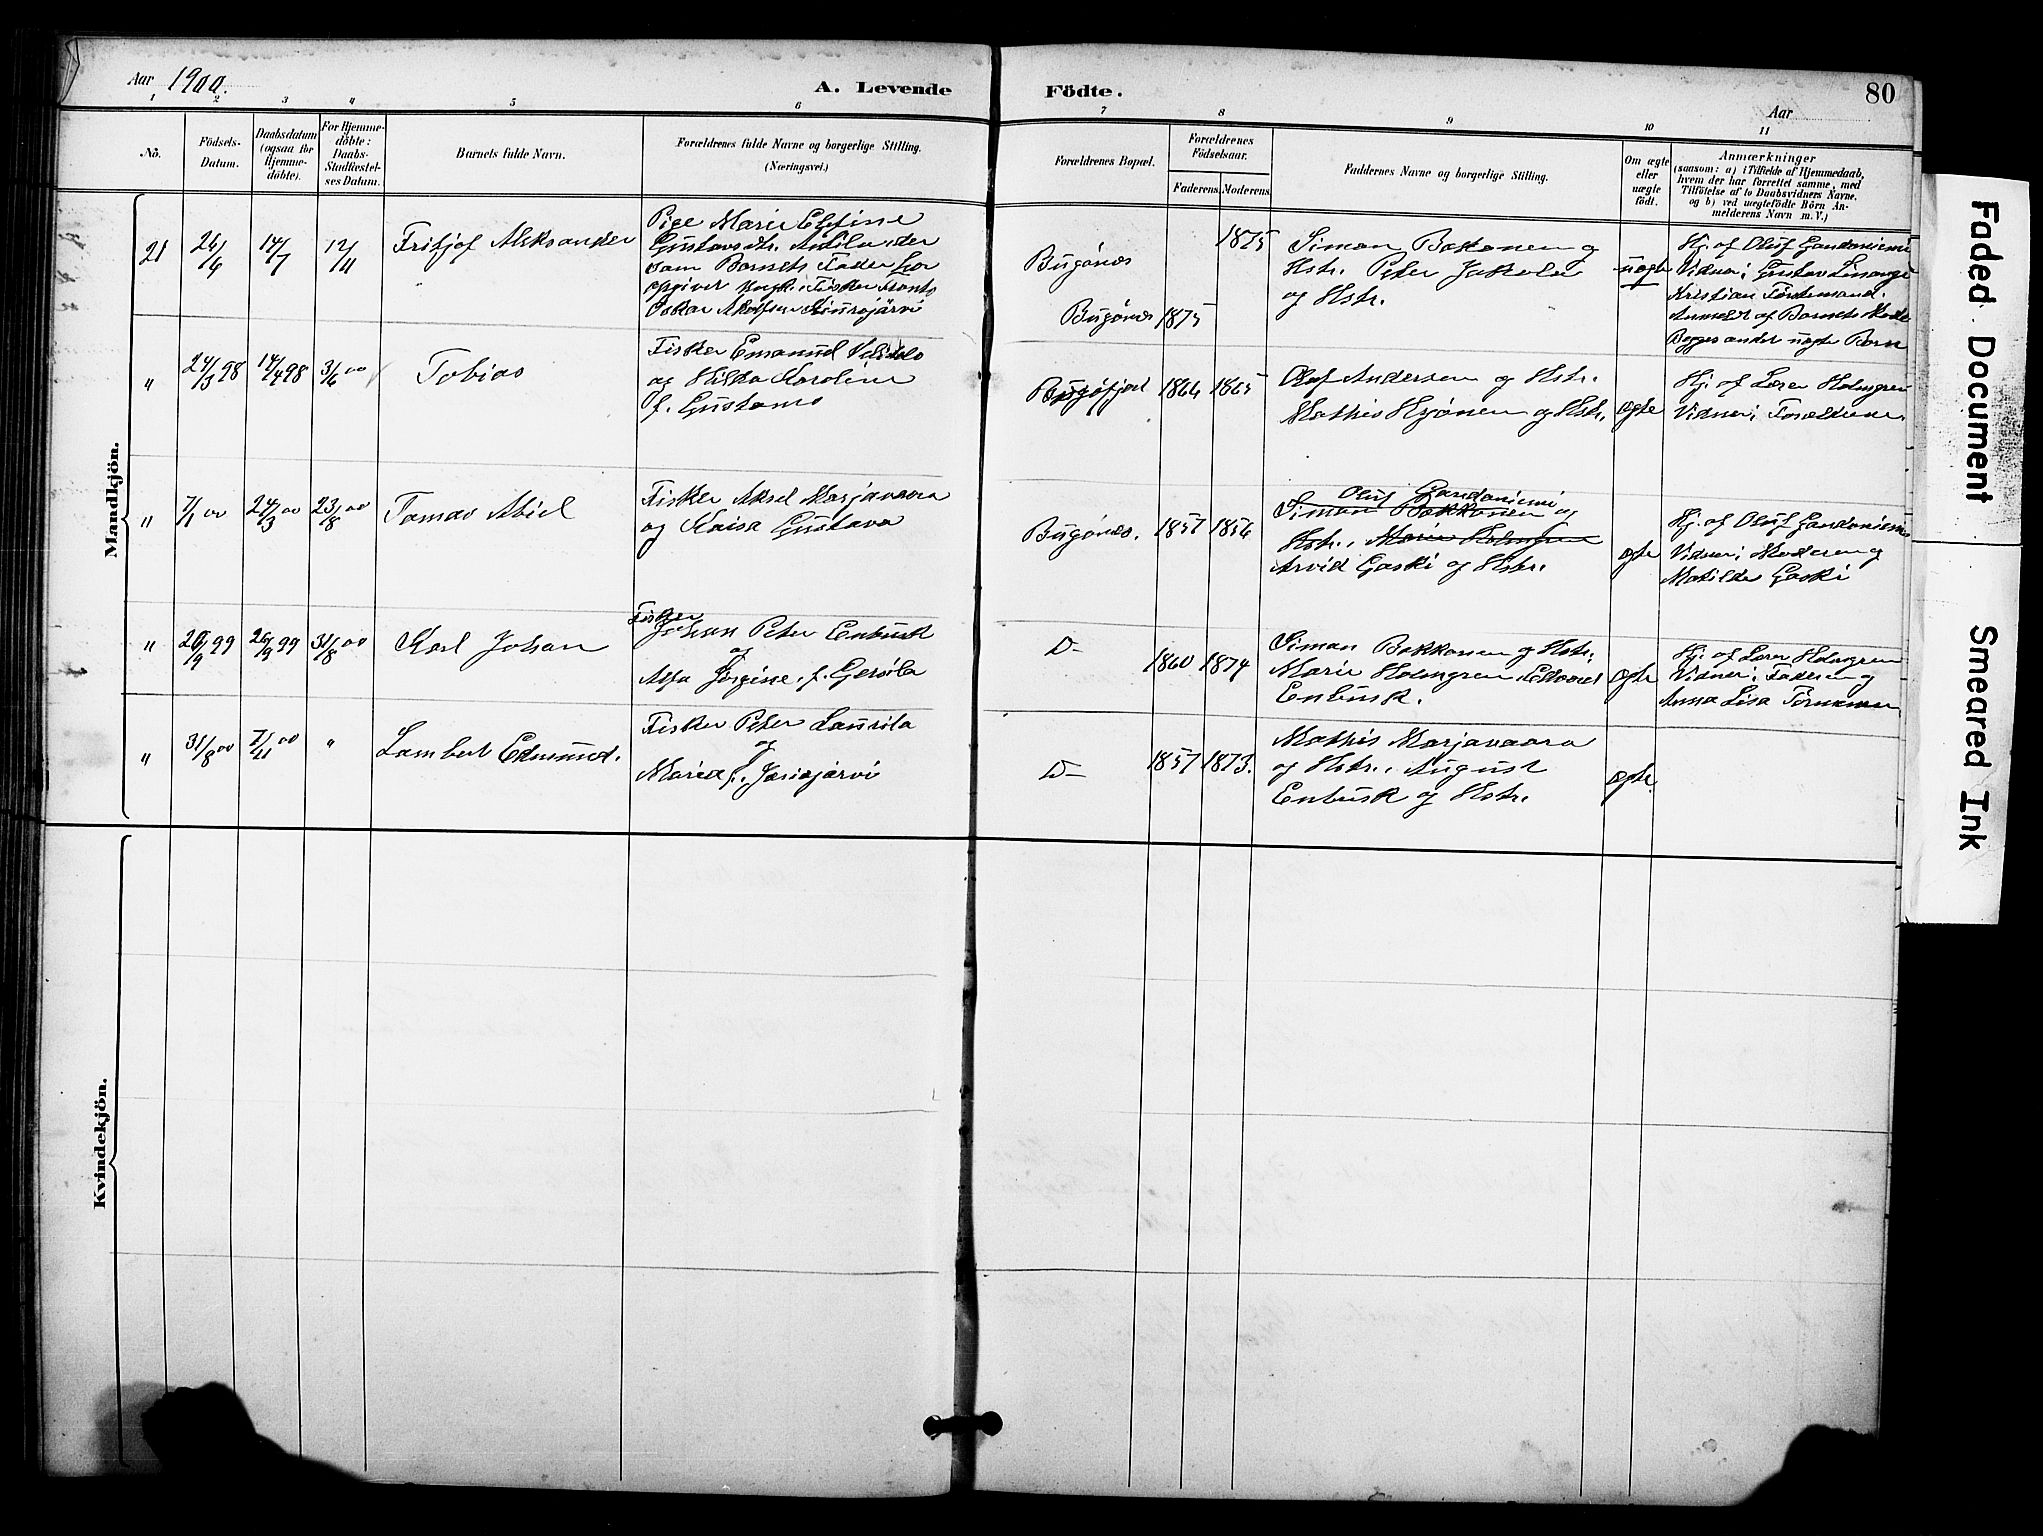 Aar 1900.
A. Levende Födte.
Aar
80
1 2 3 4 5 6 7 8 9 10 11
No.
Födsels-Datum.
Daabsdatum (ogsaa for Hjemme-döbte).
For Hjemme-döbte: Daabs-Stadfæstel-ses Datum.
Barnets fulde Navn.
Forældrenes fulde Navne og borgerlige Stilling.
(Næringsvei.)
Forældrenes Bopæl.
Forældrenes Födselsaar.
Faderens. Moderens.
Faddernes Navne og borgerlige Stilling.
Om ægte eller uægte födt.
Anmærkninger
(saasom: a) i Tilfælde af Hjemmedaab,
hvem der har forrettet samme, med
Tilföielse af to Daabsvidners Navne.
og b) ved uægtefödte Börn An-
melderens Navn m. V.)
Mandkjön.
21
26/6
14/7
12/11
Fritjof Aleksander
Pige Marie
Gustavsdtr. der
som Barnets Fader har
opgivet Ungk. Fisker Frants
Oskar
Bugönes
Bugönes 1875
1875
Simon Bakkonen og
Hstr. Peter Jakola
og Hstr.
uægte
Hj. af Oluf
Vidner: Gustav
Kristian
Anmeldt af Barnets Mode
Begges andet uægte Barn
"
24/3 98
14/4 98
3/6 00
Tobias
Fisker Emanuel
og Hilda Karoline
f. Gustavs
Bugöfjord
1864 1865
Olaf Andersen og Hstr.
Mathis og Hstr.
ægte
Hj. af Lærer Holmgren
Vidner: Forældrene
"
7/1 00
24/3 00
23/8 00
Tomas Abiel
Fisker Aksel Marjavaara
og Kaisa Gustava
Bugönes.
1857 1856
Oluf
Simon Bakkonen og
Hstr., Marie Holmgren
Arvid Gaski og Hstr.
ægte
Hj. af Oluf
Vidner: Moderen og
Matilde Gaski
"
99
99
31/8 00
Karl Johan
Fisker
Johan Peter Enbusk
og
Jörgine, f.
D-
1860 1874
Simon Bakkonen og Hstr.
Marie Holmgren, Edvard
Enbusk.
ægte
Hj. af Lærer Holmgren
Vidner: Faderen og
Anna Lisa
"
31/8 00
7/11 00
"
Lambert Edmund.
Fisker Peter Laurila
og
Maria f.
D-
1857 1873.
Mathis Marjavaara
og Hstr., August
Enbusk og Hstr.
ægte.
Kvindekjön.
Faded Document
Smeared Ink